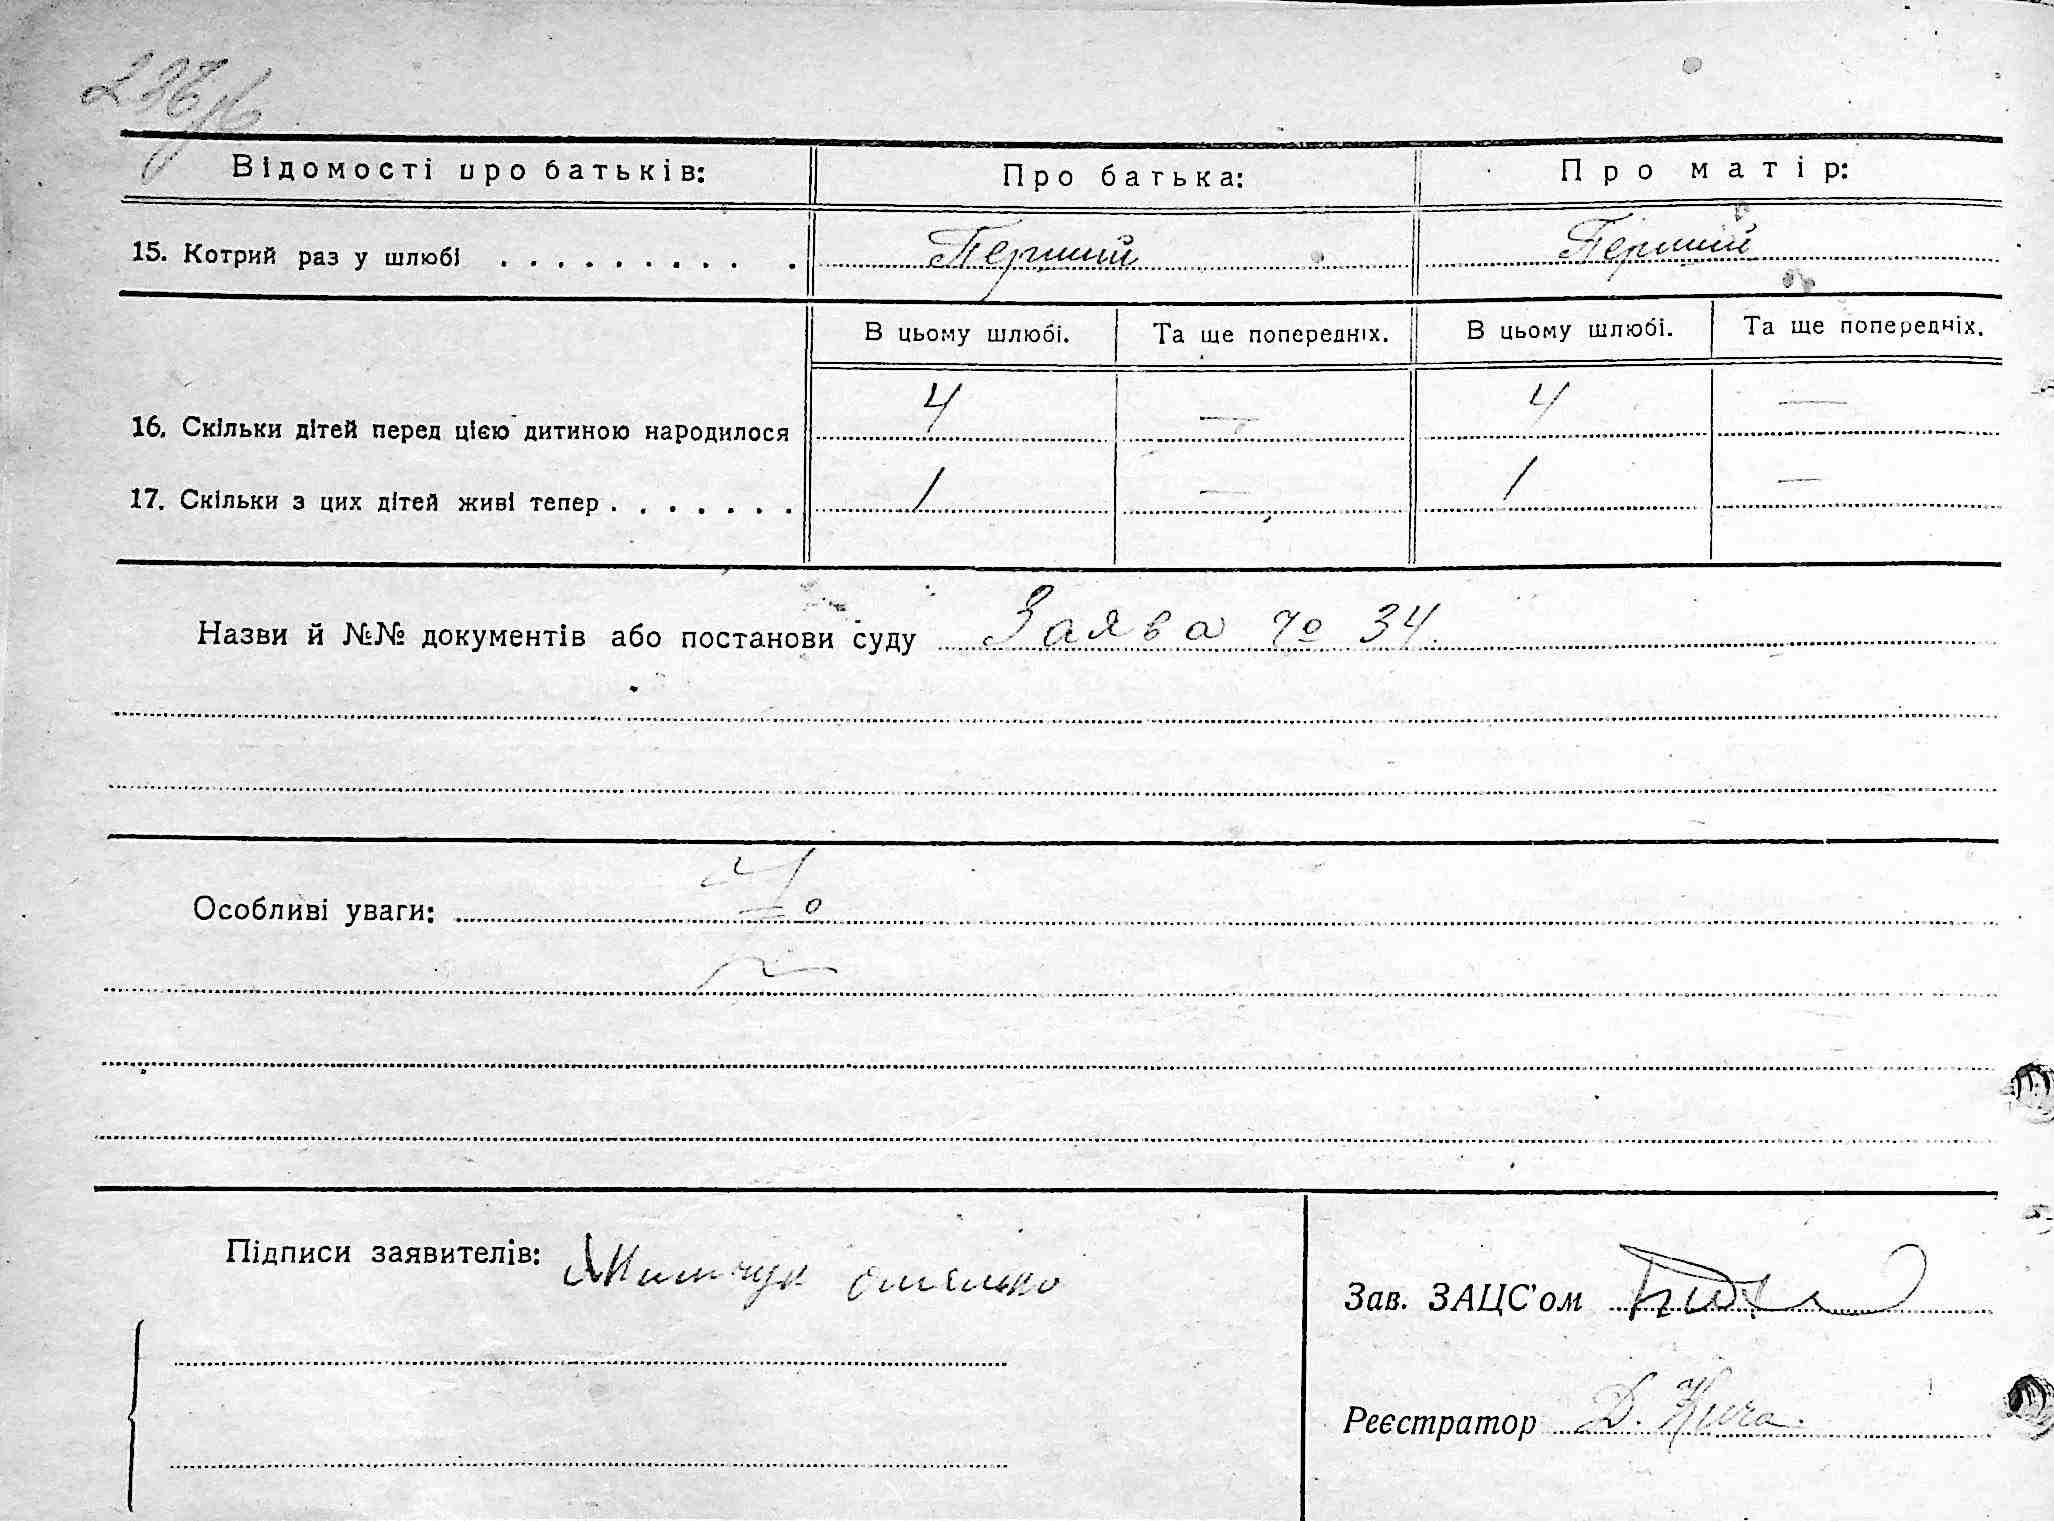 Відомості про батьків: Про батька: Про матір:
15. Котрий раз у шлюбі . . . . . . . . . . Перший Перший
В цьому шлюбі. Та ще попередніх. В цьому шлюбі. Та ще попередніх.
16. Скільки дітей перед цією дитиною народилося 4 — 4 —
17. Скільки з цих дітей живі тепер . . . . . . . 1 — 1 —
Назви й №№ документів або постанови суду Заява чо 34
Особливі уваги:
Підписи заявителів:
Зав. ЗАЦС'ом
Реєстратор Д.